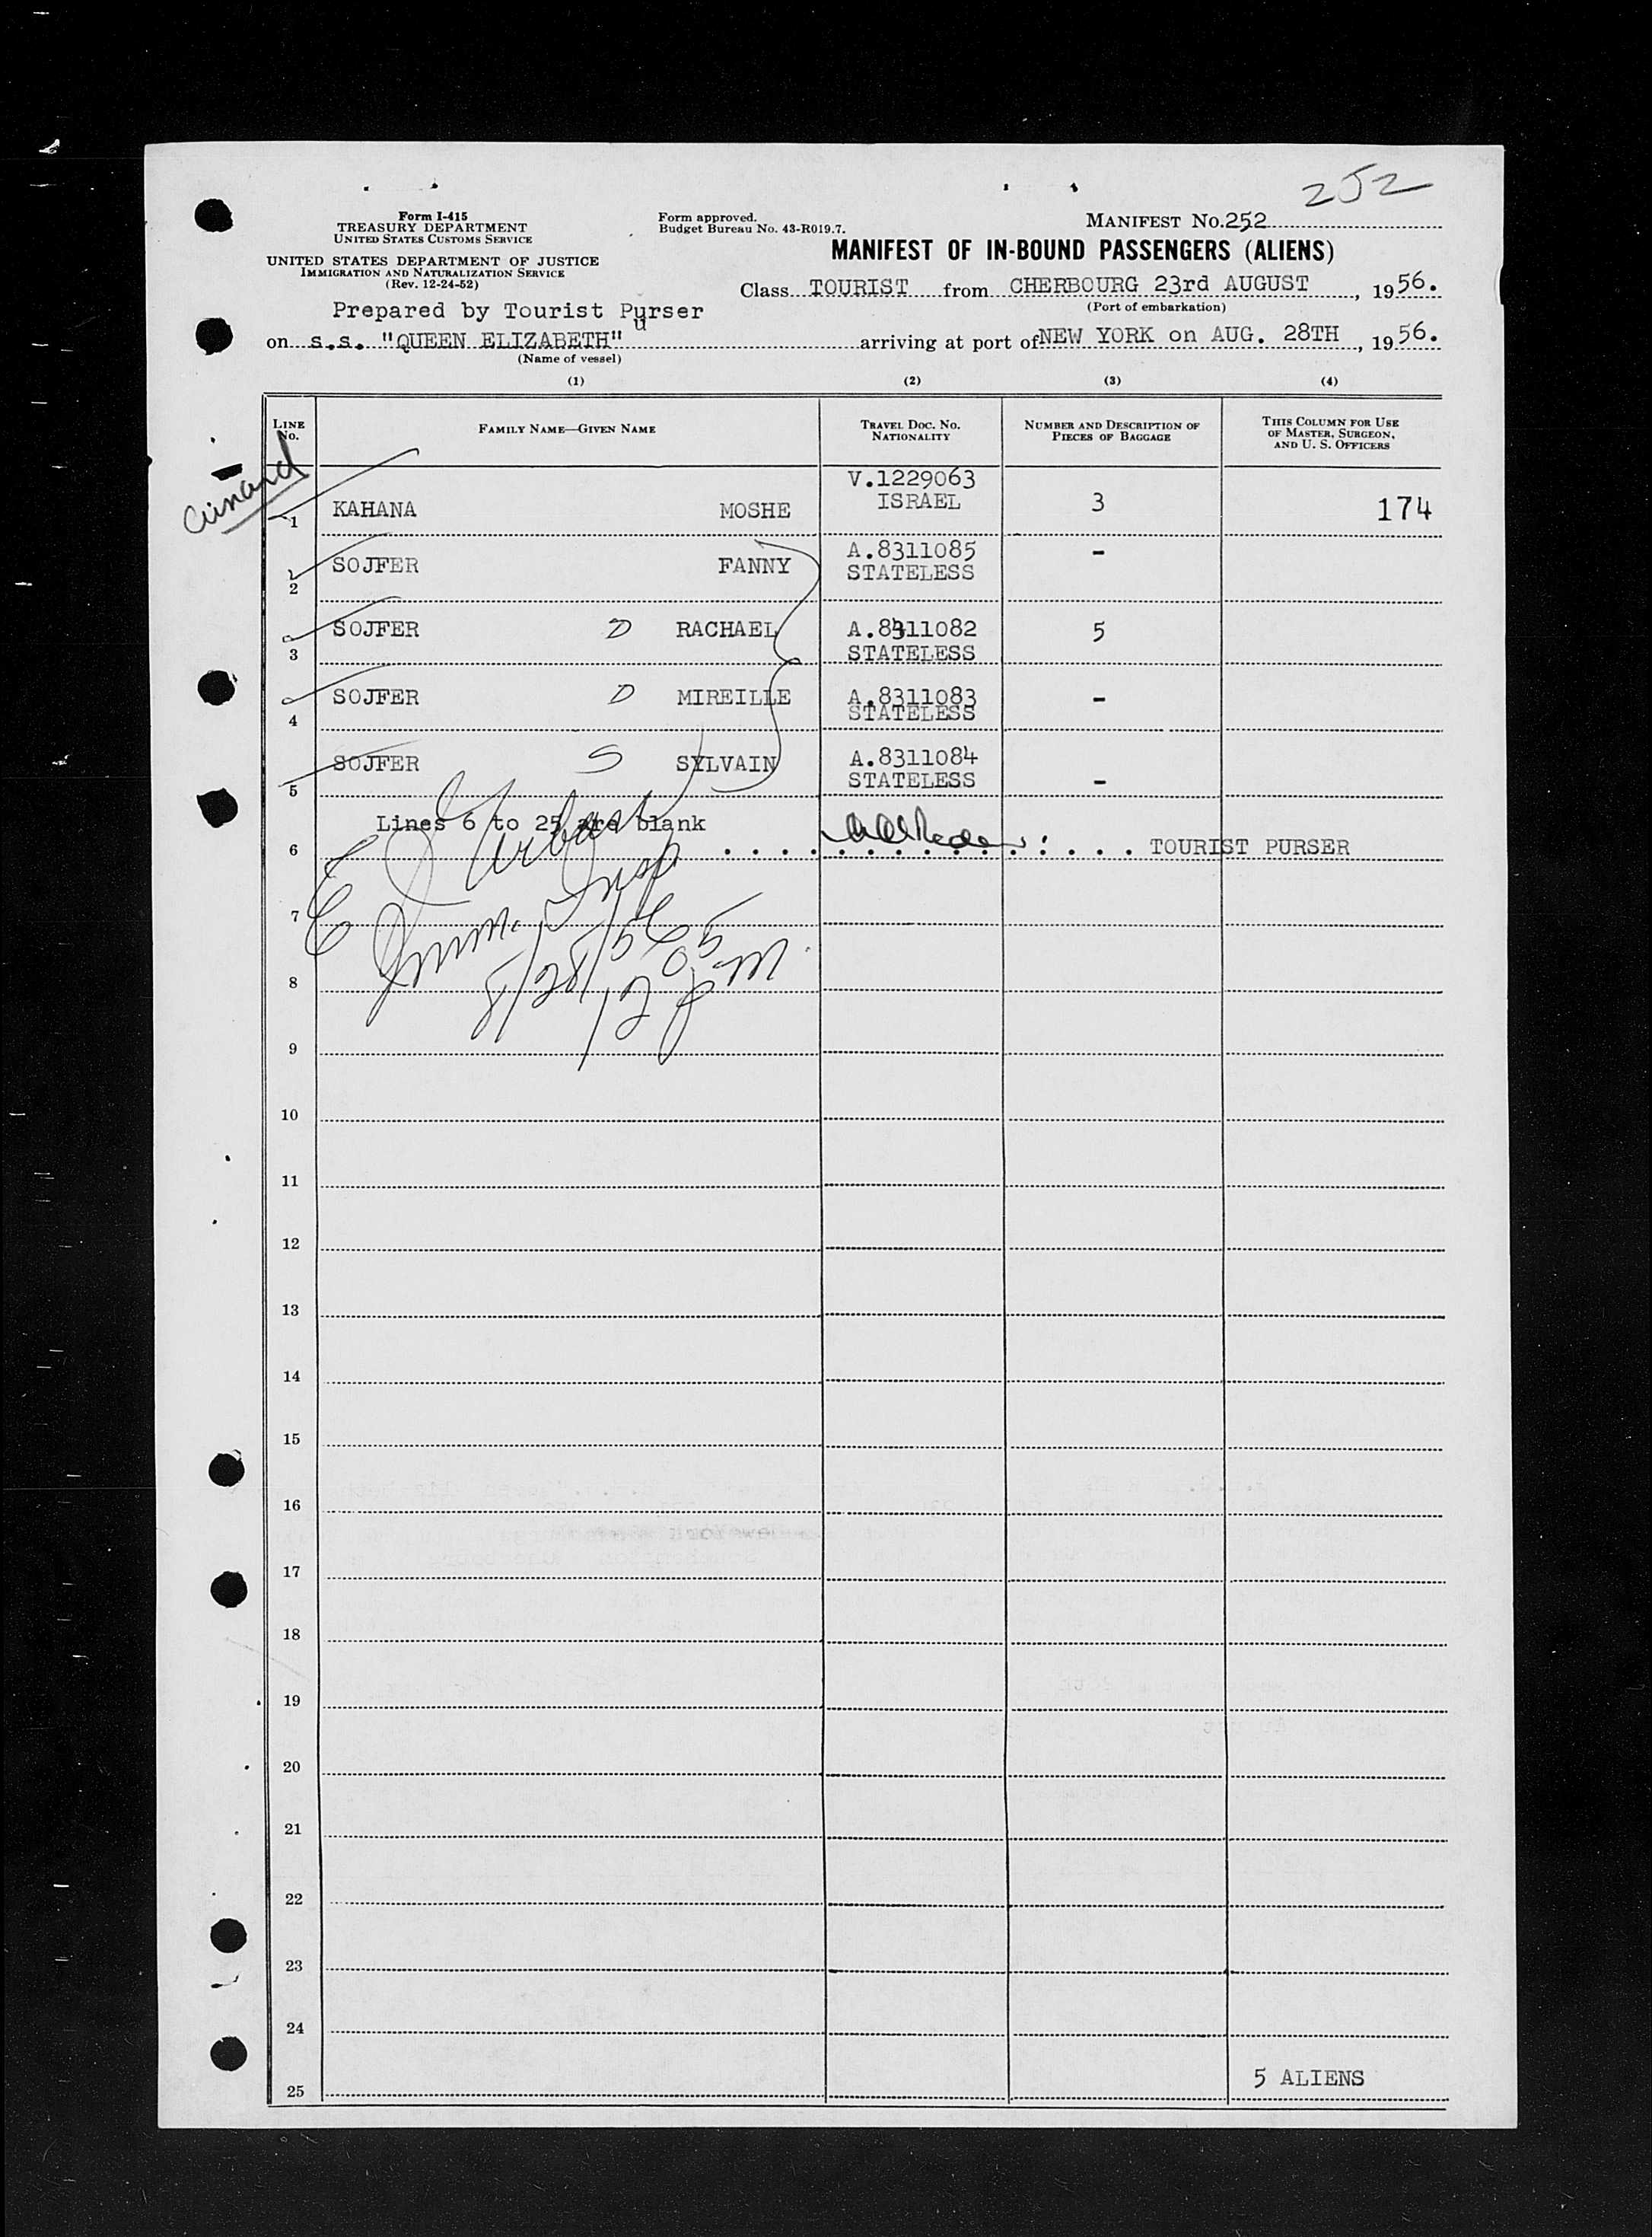 252
Form I-415
TREASURY DEPARTMENT
UNITED STATES CUSTOMS SERVICE
UNITED STATES DEPARTMENT OF JUSTICE
IMMIGRATION AND NATURALIZATION SERVICE
(Rev. 12-24-52)
Form approved.
Budget Bureau No. 43-R019.7.
MANIFEST NO.252
MANIFEST OF IN-BOUND PASSENGERS (ALIENS)
Class TOURIST from CHERBOURG 23rd AUGUST, 1956.
(Port of embarkation)
Prepared by Tourist Purser
u
on s.s. "QUEEN ELIZABETH" arriving at port of NEW YORK on AUG. 28TH, 1956.
(Name of vessel)
(1) (2) (3) (4)
LINE NO. FAMILY NAME—GIVEN NAME TRAVEL DOC. NO. NATIONALITY NUMBER AND DESCRIPTION OF PIECES OF BAGGAGE THIS COLUMN FOR USE OF MASTER, SURGEON, AND U. S. OFFICERS
Cunard
V.1229063
1 KAHANA MOSHE ISRAEL 3 174
2 SOJFER FANNY A.8311085 -
STATELESS
3 SOJFER D RACHAEL A.8311082 5
STATELESS
4 SOJFER D MIREILLE A.8311083 -
STATELESS
5 SOJFER S SYLVAIN A.8311084
STATELESS -
Lines 6 to 25 are blank
6 TOURIST PURSER
Immig. Insp
7
8
9
10
11
12
13
14
15
16
17
18
19
20
21
22
23
24
25 5 ALIENS